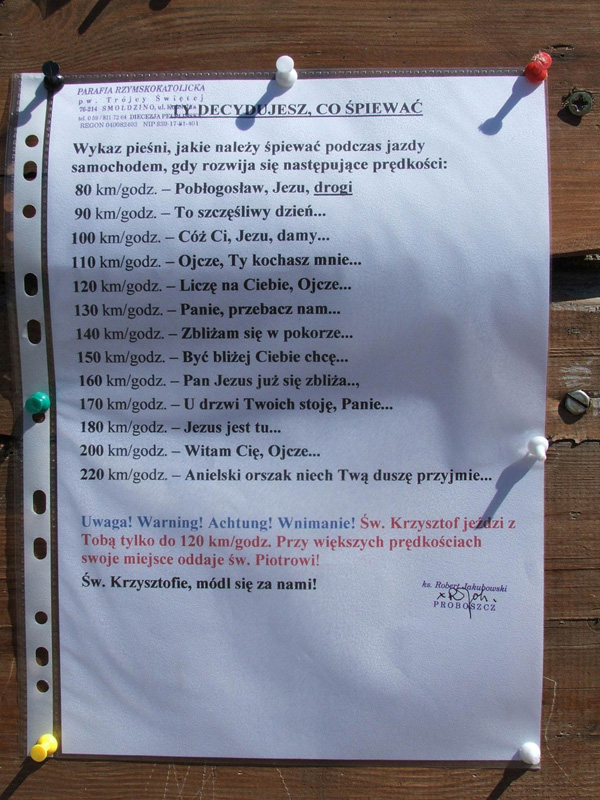 PARAFIA RZYMSKOKATOLICKA
pw. Trójcy Świętej
76-214 SMOŁDZINO, ul.
DECYDUJESZ, CO ŚPIEWAĆ
tel. 0 59 / 811 72 64 DIECEZJA
REGON 040082403 NIP 839-17-91-401
Wykaz pieśni, jakie należy śpiewać podczas jazdy
samochodem, gdy rozwija się następujące prędkości:
80 km/godz. – Pobłogosław, Jezu, drogi
90 km/godz. – To szczęśliwy dzień...
100 km/godz. – Cóż Ci, Jezu, damy...
110 km/godz. – Ojcze, Ty kochasz mnie...
120 km/godz. – Liczę na Ciebie, Ojcze...
130 km/godz. – Panie, przebacz nam...
140 km/godz. – Zbliżam się w pokorze...
150 km/godz. – Być bliżej Ciebie chcę...
160 km/godz. – Pan Jezus już się zbliża..,
170 km/godz. – U drzwi Twoich stoję, Panie...
180 km/godz. – Jezus jest tu...
200 km/godz. – Witam Cię, Ojcze...
220 km/godz. – Anielski orszak niech Twą duszę przyjmie...
Uwaga! Warning! Achtung! Wnimanie! Św. Krzysztof jeździ z
Tobą tylko do 120 km/godz. Przy większych prędkościach
swoje miejsce oddaje św. Piotrowi!
Św. Krzysztofie, módl się za nami!
ks. Robert Jakubowski
PROBOSZCZ